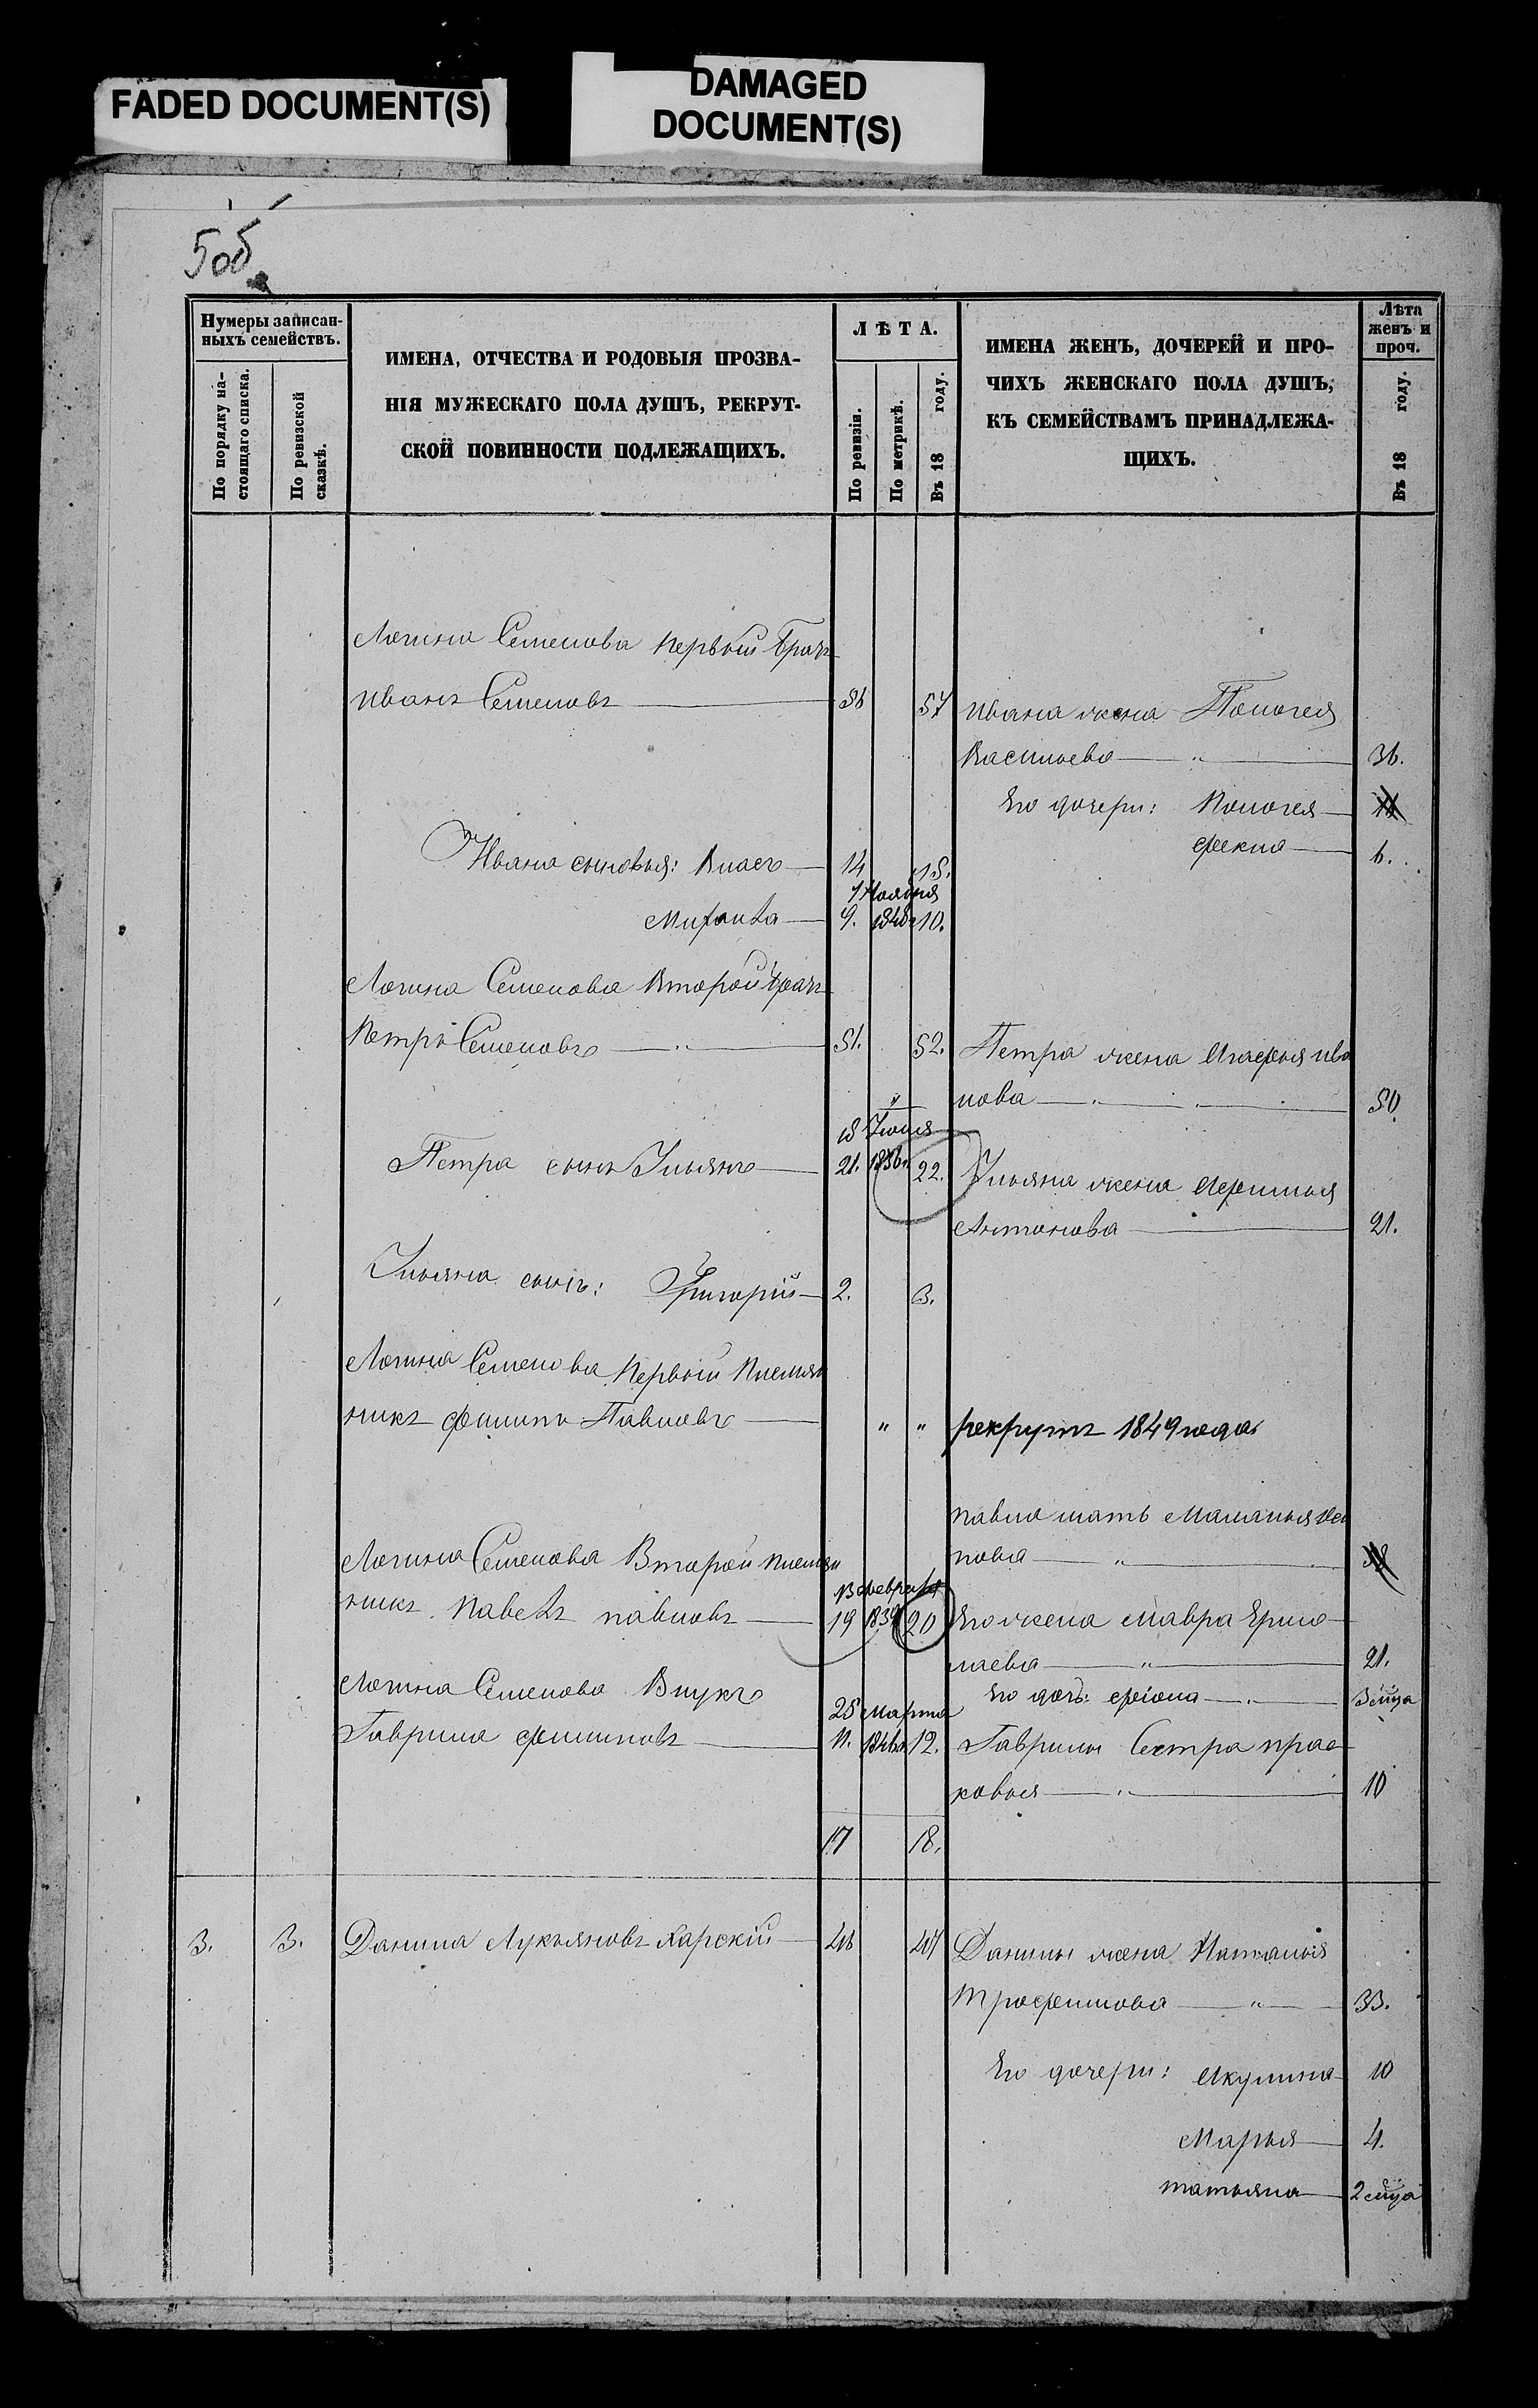 FADED DOCUMENT(S)
DAMAGED
DOCUMENT(S)
5об
Нумеры записан-
ныхъ семействъ.
По порядку на-
стоящаго списка.
По ревизской
сказкѣ.
ИМЕНА, ОТЧЕСТВА И РОДОВЫЯ ПРОЗВА-
НІЯ МУЖЕСКАГО ПОЛА ДУШЪ, РЕКРУТ-
СКОЙ ПОВИННОСТИ ПОДЛЕЖАЩИХЪ.
ЛѢТА.
По ревизіи.
По метрикѣ.
Въ 18 году.
ИМЕНА ЖЕНЪ, ДОЧЕРЕЙ И ПРО-
ЧИХЪ ЖЕНСКАГО ПОЛА ДУШЪ,
КЪ СЕМЕЙСТВАМЪ ПРИНАДЛЕЖА-
ЩИХЪ.
Лѣта
женъ и
проч.
Въ 18 году.
Логина Семенова первый братъ
Иванъ Семеновъ 56 57 Ивана жена Пологея
Васильева 36.
Его дочери: Пологея
Фекла 6.
Ивана сыновья: Власъ 14 15.
7 Ноября
Михаила 9. 1848 10.
Логина Семенова Второй братъ
Петръ Семеновъ 51. 52. Петра жена Агафья Ива
нова 50
18 Июля
Петра сынъ Ульянъ 21. 1836 22. Ульяна жена Афимья
Антонова 21.
Ульяна сынъ: Григорій 2. 3.
Логина Семенова Первый Племян
никъ Филипъ Павловъ " " рекрутъ 1849 года
Павла мать Маланья
пова
Логина Семенова Второй племян
13 Февраля
никъ Павелъ Павловъ 19 1839 20 Его жена Мавра Ермо
лаева 21.
Логина Семенова Внукъ Его дочь: 3 м-ца
25 Марта
Гаврила Филиповъ 11. 1846 12. Гаврилы Сестра Прас
ковья 10
17 18.
3. 3. Данила Лукьяновъ Карскій 46 47 Данилы жена Наталья
Трофимова 33.
Его дочери: Акулина 10
Марья 4.
Татьяна 2 м-ца